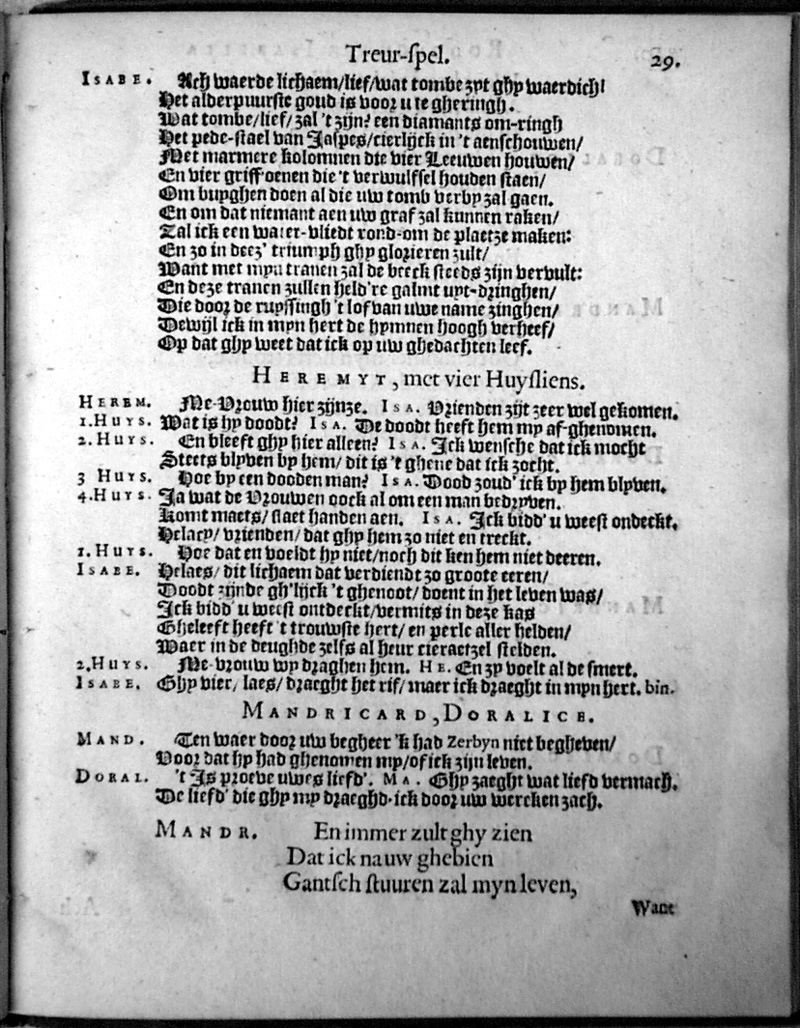 Treur-ſpel. 29.
ISABE. Ach waerde lichaem/lief/wat tombe zyt ghy waerdich!
Het alderpuurſte goud is voor u te gheringh.
Wat tombe/lief/zal 't zijn? een diamants om-ringh
Het pede-ſtael van Jaſpes/cierlijck in 't aenſchouwen/
Met marmere kolomnen die vier Leeuwen houwen/
En vier griff'oenen die 't verwulfſel houden ſtaen/
Om buyghen doen al die uw tomb verby zal gaen.
En om dat niemant aen uw graf zal kunnen raken/
Zal ick een water-vliedt rond-om de plaetze maken:
En zo in deez' triumph ghy glorieren zult/
Want met myn tranen zal de beeck ſteeds zijn vervult:
En deze tranen zullen held're galmt uyt-dringhen/
Die door de ruyſſingh 't lof van uwe name zinghen/
Dewijl ick in myn hert de hymnen hoogh verheef/
Op dat ghy weet dat ick op uw ghedachten leef.
HEREMYT, met vier Huyſliens.
HEREM. Me-Vrouw hier zijnze. ISA. Vrienden zijt zeer wel gekomen.
1.HUYS. Wat is hy doodt? ISA. De doodt heeft hem my af-ghenomen.
2.HUYS. En bleeft ghy hier alleen? ISA. Ick wenſche dat ick mocht
Steets blyven by hem/ dit is 't ghene dat ick zocht.
3 HUYS. Hoe by een dooden man? ISA. Dood zoud' ick by hem blyven.
4.HUYS. Ja wat de Vrouwen oock al om een man bedryven.
Komt maets/ ſlaet handen aen. ISA. Ick bidd' u weeſt ondeckt,
Helacy/ vrienden/ dat ghy hem zo niet en treckt.
1.HUYS. Hoe dat en voeldt hy niet/noch dit ken hem niet deeren.
ISABE. Helaes/ dit lichaem dat verdiendt zo groote eeren/
Doodt zijnde gh'lijck 't ghenoot/ doent in het leven was/
Ick bidd' u weeſt ontdeckt/vermits in deze kas
Gheleeft heeft 't trouwſte hert/ en perle aller helden/
Waer in de deughde zelfs al heur cieraetzel ſtelden.
2.HUYS. Me-vrouw wy draghen hem. HE. En zy voelt al de ſmert.
ISABE. Ghy vier/ laes/ draeght het rif/ maer ick draeght in myn hert. bin.
MANDRICARD, DORALICE.
MAND. Ten waer door uw begheer 'k had Zerbyn niet begheven/
Voor dat hy had ghenomen my/of ick zijn leven.
DORAL. 't Is proeve uwes liefd'. MA. Ghy zaeght wat liefd vermach.
De liefd' die ghy my draeghd. ick door uw wercken zach.
MANDR. En immer zult ghy zien
Dat ick na uw ghebien
Gantſch ſtuuren zal myn leven,
Want